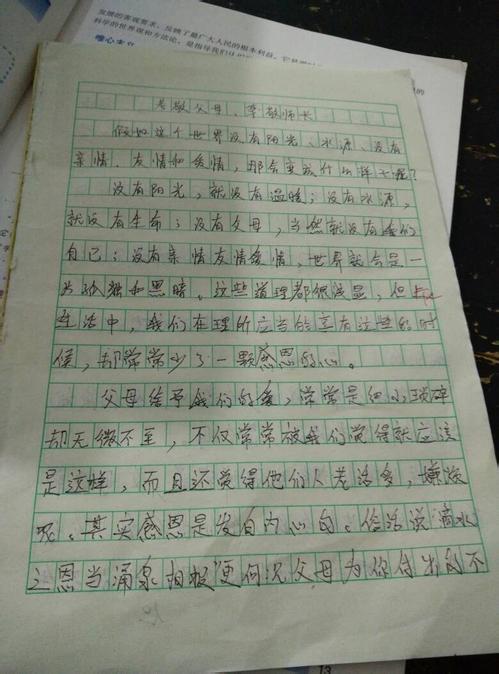 发展的客观要求，反映了最广大人民的根本利益
科学的世界观和方法论，是指导我们
唯心主义
孝敬父母、尊敬师长
假如这个世界没有阳光、水源、没有
亲情、友情和爱情，那会变成什么样子呢？
没有阳光，就没有温暖；没有水源，
就没有生命；没有父母，当然就没有我们
自己；没有亲情友情爱情，世界就会是一
片孤独和黑暗。这些道理都很浅显，但在
生活中，我们在理所应当的享有这些的时
候，却常常少了一颗感恩的心。
父母给予我们的爱，常常是细小琐碎
却无微不至，不仅常常被我们觉得就应该
是这样，而且还觉得他们人老话多，嫌烦
呢。其实感恩是发自内心的。俗话说"滴水
之恩当涌泉相报"更何况父母为你付出的不
13